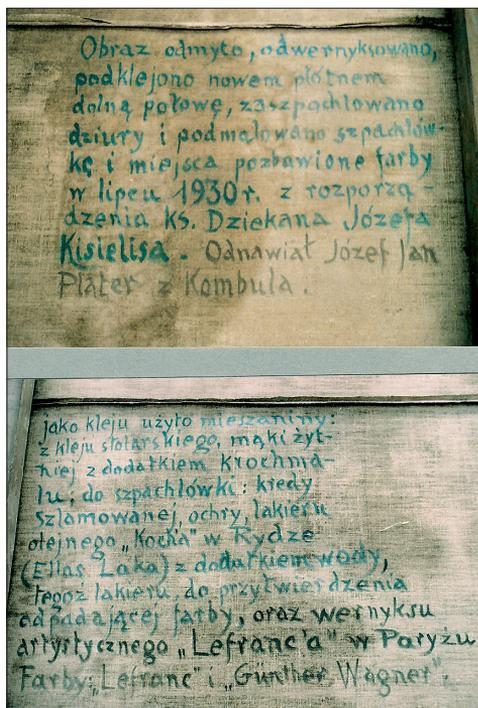 Obraz odmyto, odwernyksowano,
podklejono nowem płótnem
dolną połowę, zaszpachlowano
dziury i podmalowano szpachlów-
kę i miejsca pozbawione farby
w lipcu 1930 r. z rozporzą-
dzenia ks. Dziekana Józefa
Kisielisa. Odnawiał Józef Jan
Plater z Kombula.
jako kleju użyto mieszaniny:
z kleju stolarskiego, mąki żyt-
niej z dodatkiem krochma-
lu; do szpachlówki: kredy
szlamowanej, ochry, lakieru
olejnego „Kocha" w Rydze
(Ellas Laka) z dodatkiem wody,
tegoż lakieru, do przytwierdzenia
odpadającej farby, oraz wernyksu
artystycznego „Lefranc'a" w Paryżu
Farby: „Lefranc" i „Günther Wagner".